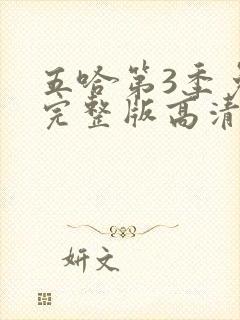 五哈第3季
完整版高清
妍文